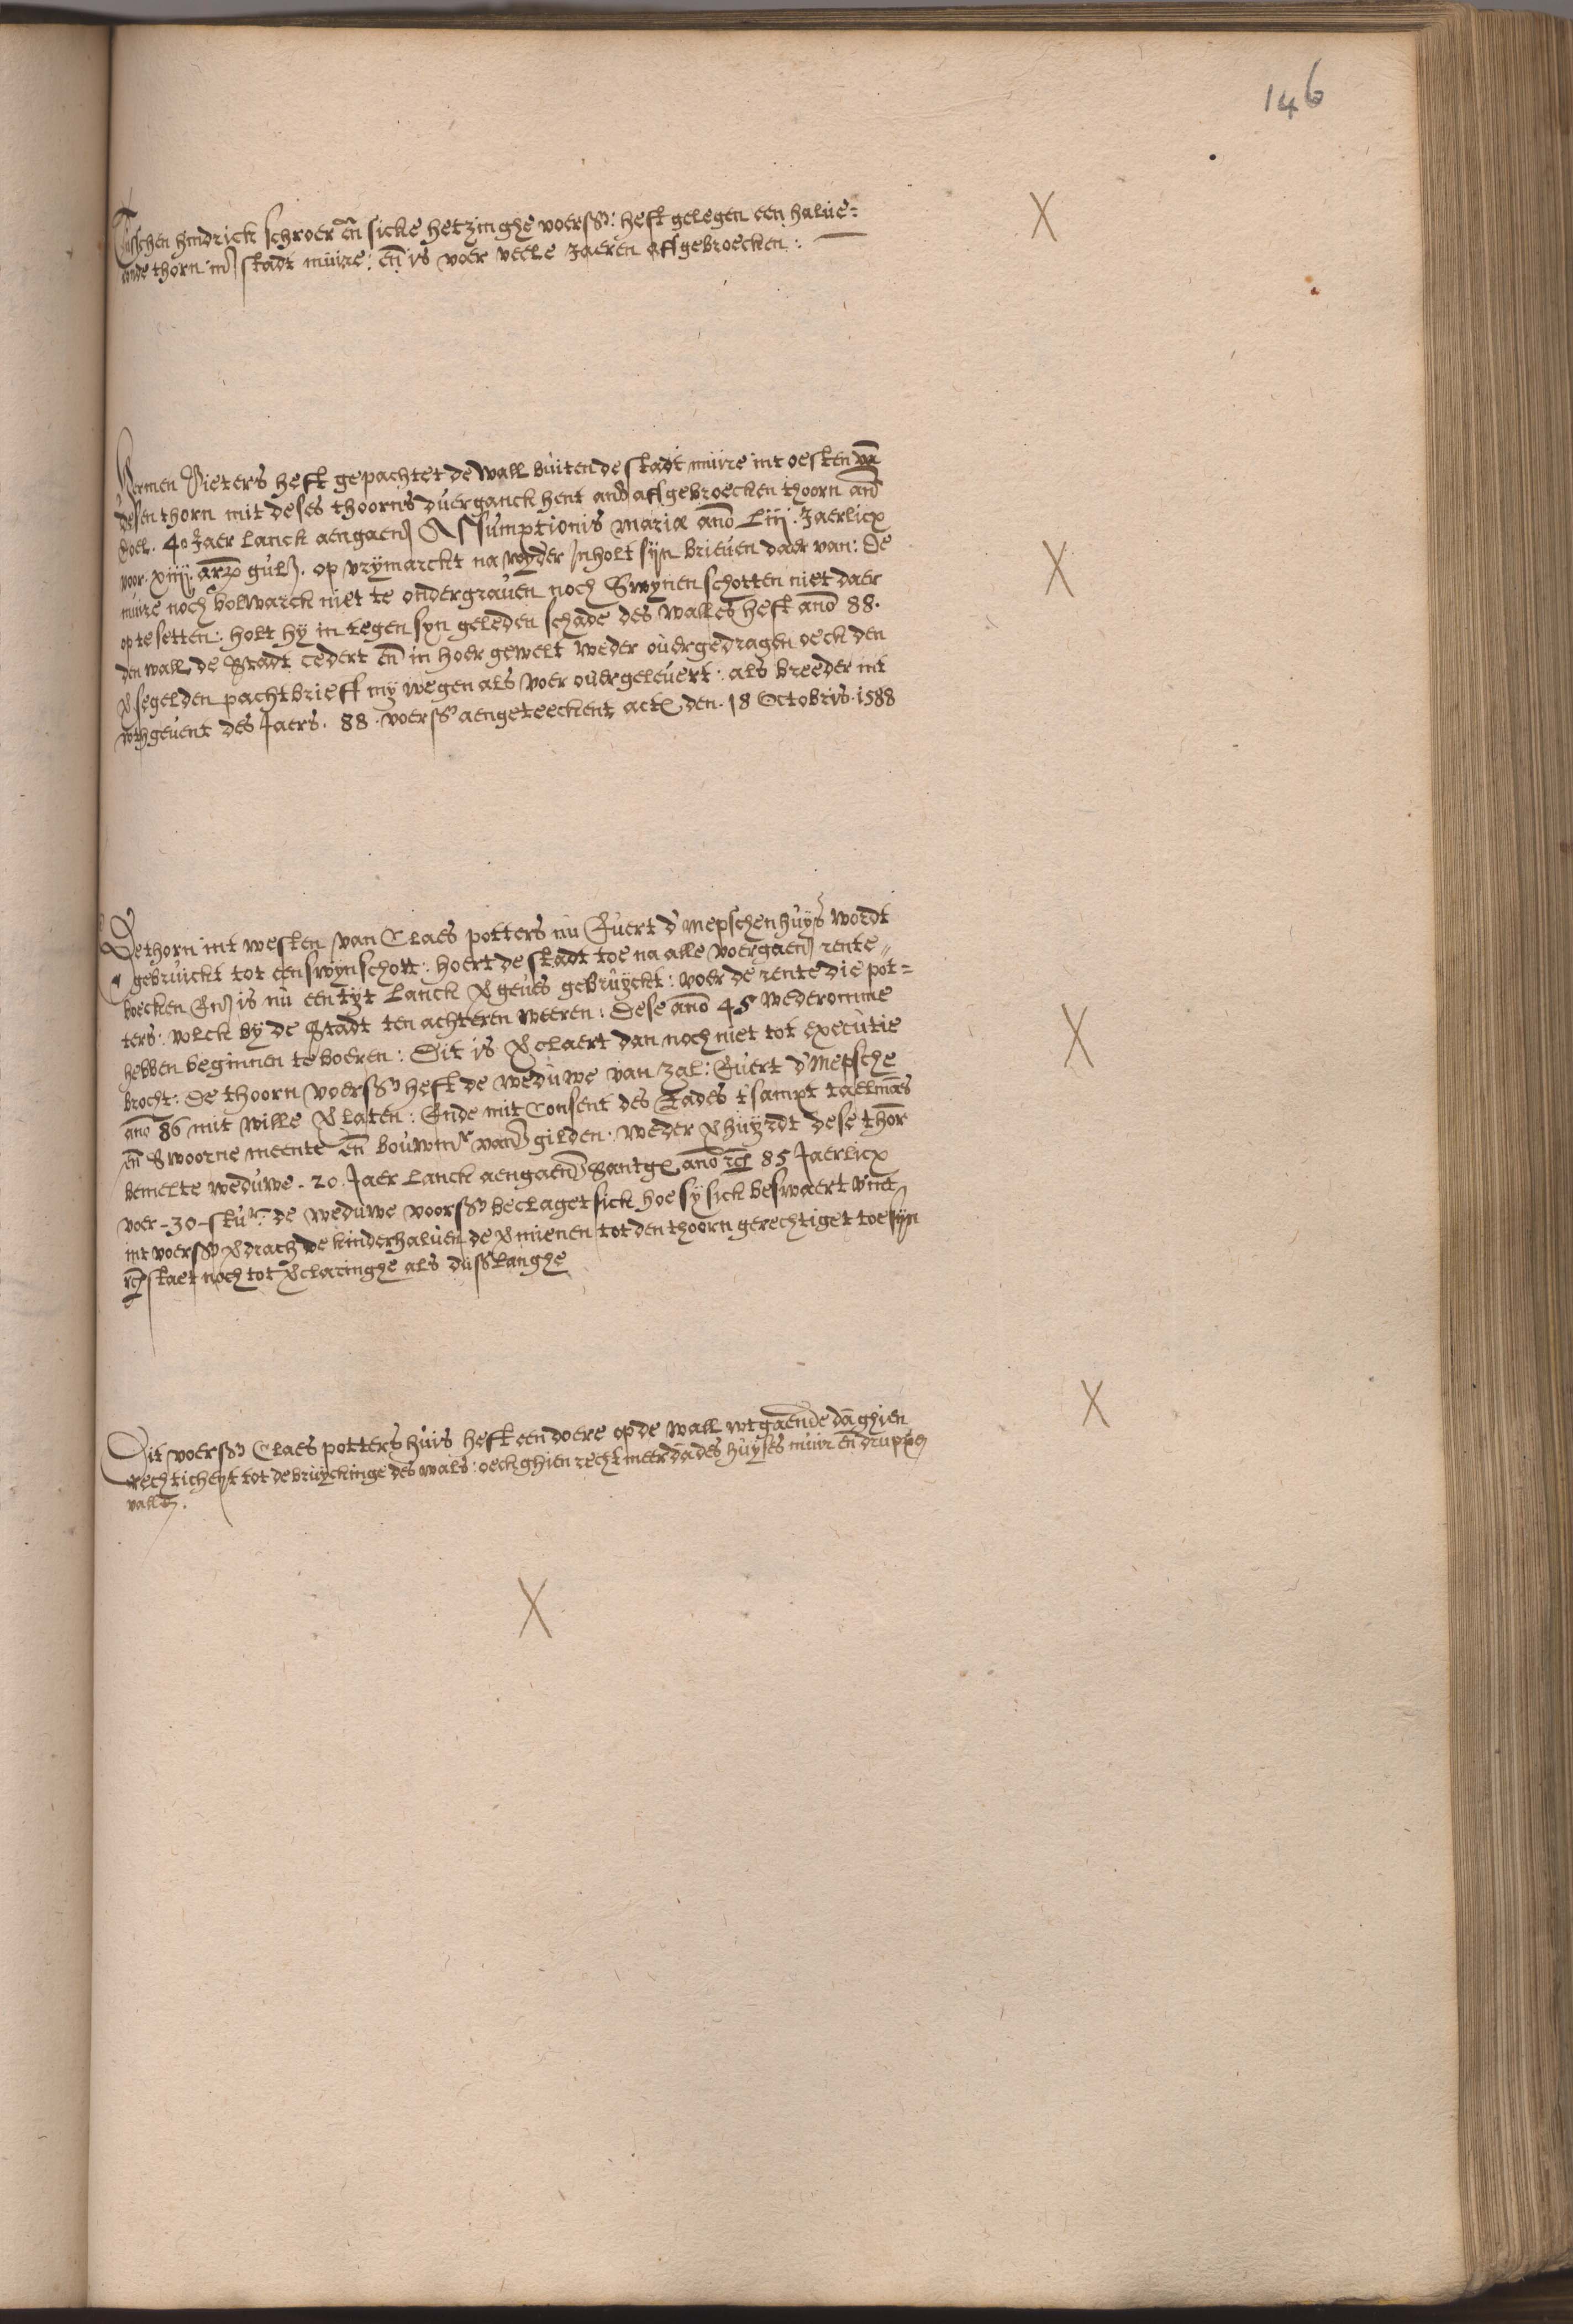 146
Tusschen hindrick schroer en̄ sicke hetzinghe voerss: heft gelegen een halue=
ronde thorn in stadt muire: en̄ is voer veele Jaeren affgebroecken:
Hermen Pieters heft gepachtet de wall buiten de stadt muire int oesten va̅
desen thorn mit deses thoorns duerganck hent and affgebroecken thoorn and
doel. 40 Jaer lanck aengaen Assumptionis Mariæ an̄o Liij. Jaerlicx
voor. xiiij. gul. op vrymarckt na wyder Inholt syn brieuen daer van: De
muire noch bolwarck niet te ondergrauen noch Swynen schotten niet daer
op te setten: holt hy in tegen syn geleden schade des walles heft an̄o 88.
den wall de Stadt cedert en̄ in hoer gewelt weder ouergedragen oeck den
segelden pachtbrieff my wegen als voer ouergeleuert: als breeder int
wthgeuent des Jaers. 88. voerss aengeteeckent act den. 18 Octobris. 1588
De thorn int westen van Claes potters nu Euert d' Mepschen huys wordt
gebruickt tot een swynschott: hoert de stadt toe na alle voergaen rente
boecken End is nu een tyt lanck geues gebruyckt: voer de rente die pot=
ters: volck by de Stadt ten achteren weeren: Dese an̄o 45 wederomme
hebben beginnen te boeren: Dit is claert dan noch niet tot executie
brocht: De thoorn voerss heft de weduwe van zal: Euert d' Mepsche
an̄o 86 mit wille laten: Ende mit Consent des Rades t'sampt taelma̅s
en̄ Swoorne meente en̄ bouwmr van gilden. weder huyrdt dese thor̄
bemelte weduwe. 20. Jaer lanck aengaen an̄o 85 Jaerlicx
voer-30-stur. de weduwe voorss beclaget sick hoe sy sick beswaert vint
int voerss drach de kinder haluen de mienen tot den thoorn gerechtiget toe syn
staet noch tot claringhe als duss langhe
Dit voerss Claes potters huis heft een doere op de wall wtgaende da̅ ghien
rechticheyt tot de bruyckinge des wals: oeck ghien recht meer da̅ des huyses muir en̄ druppen
vall.